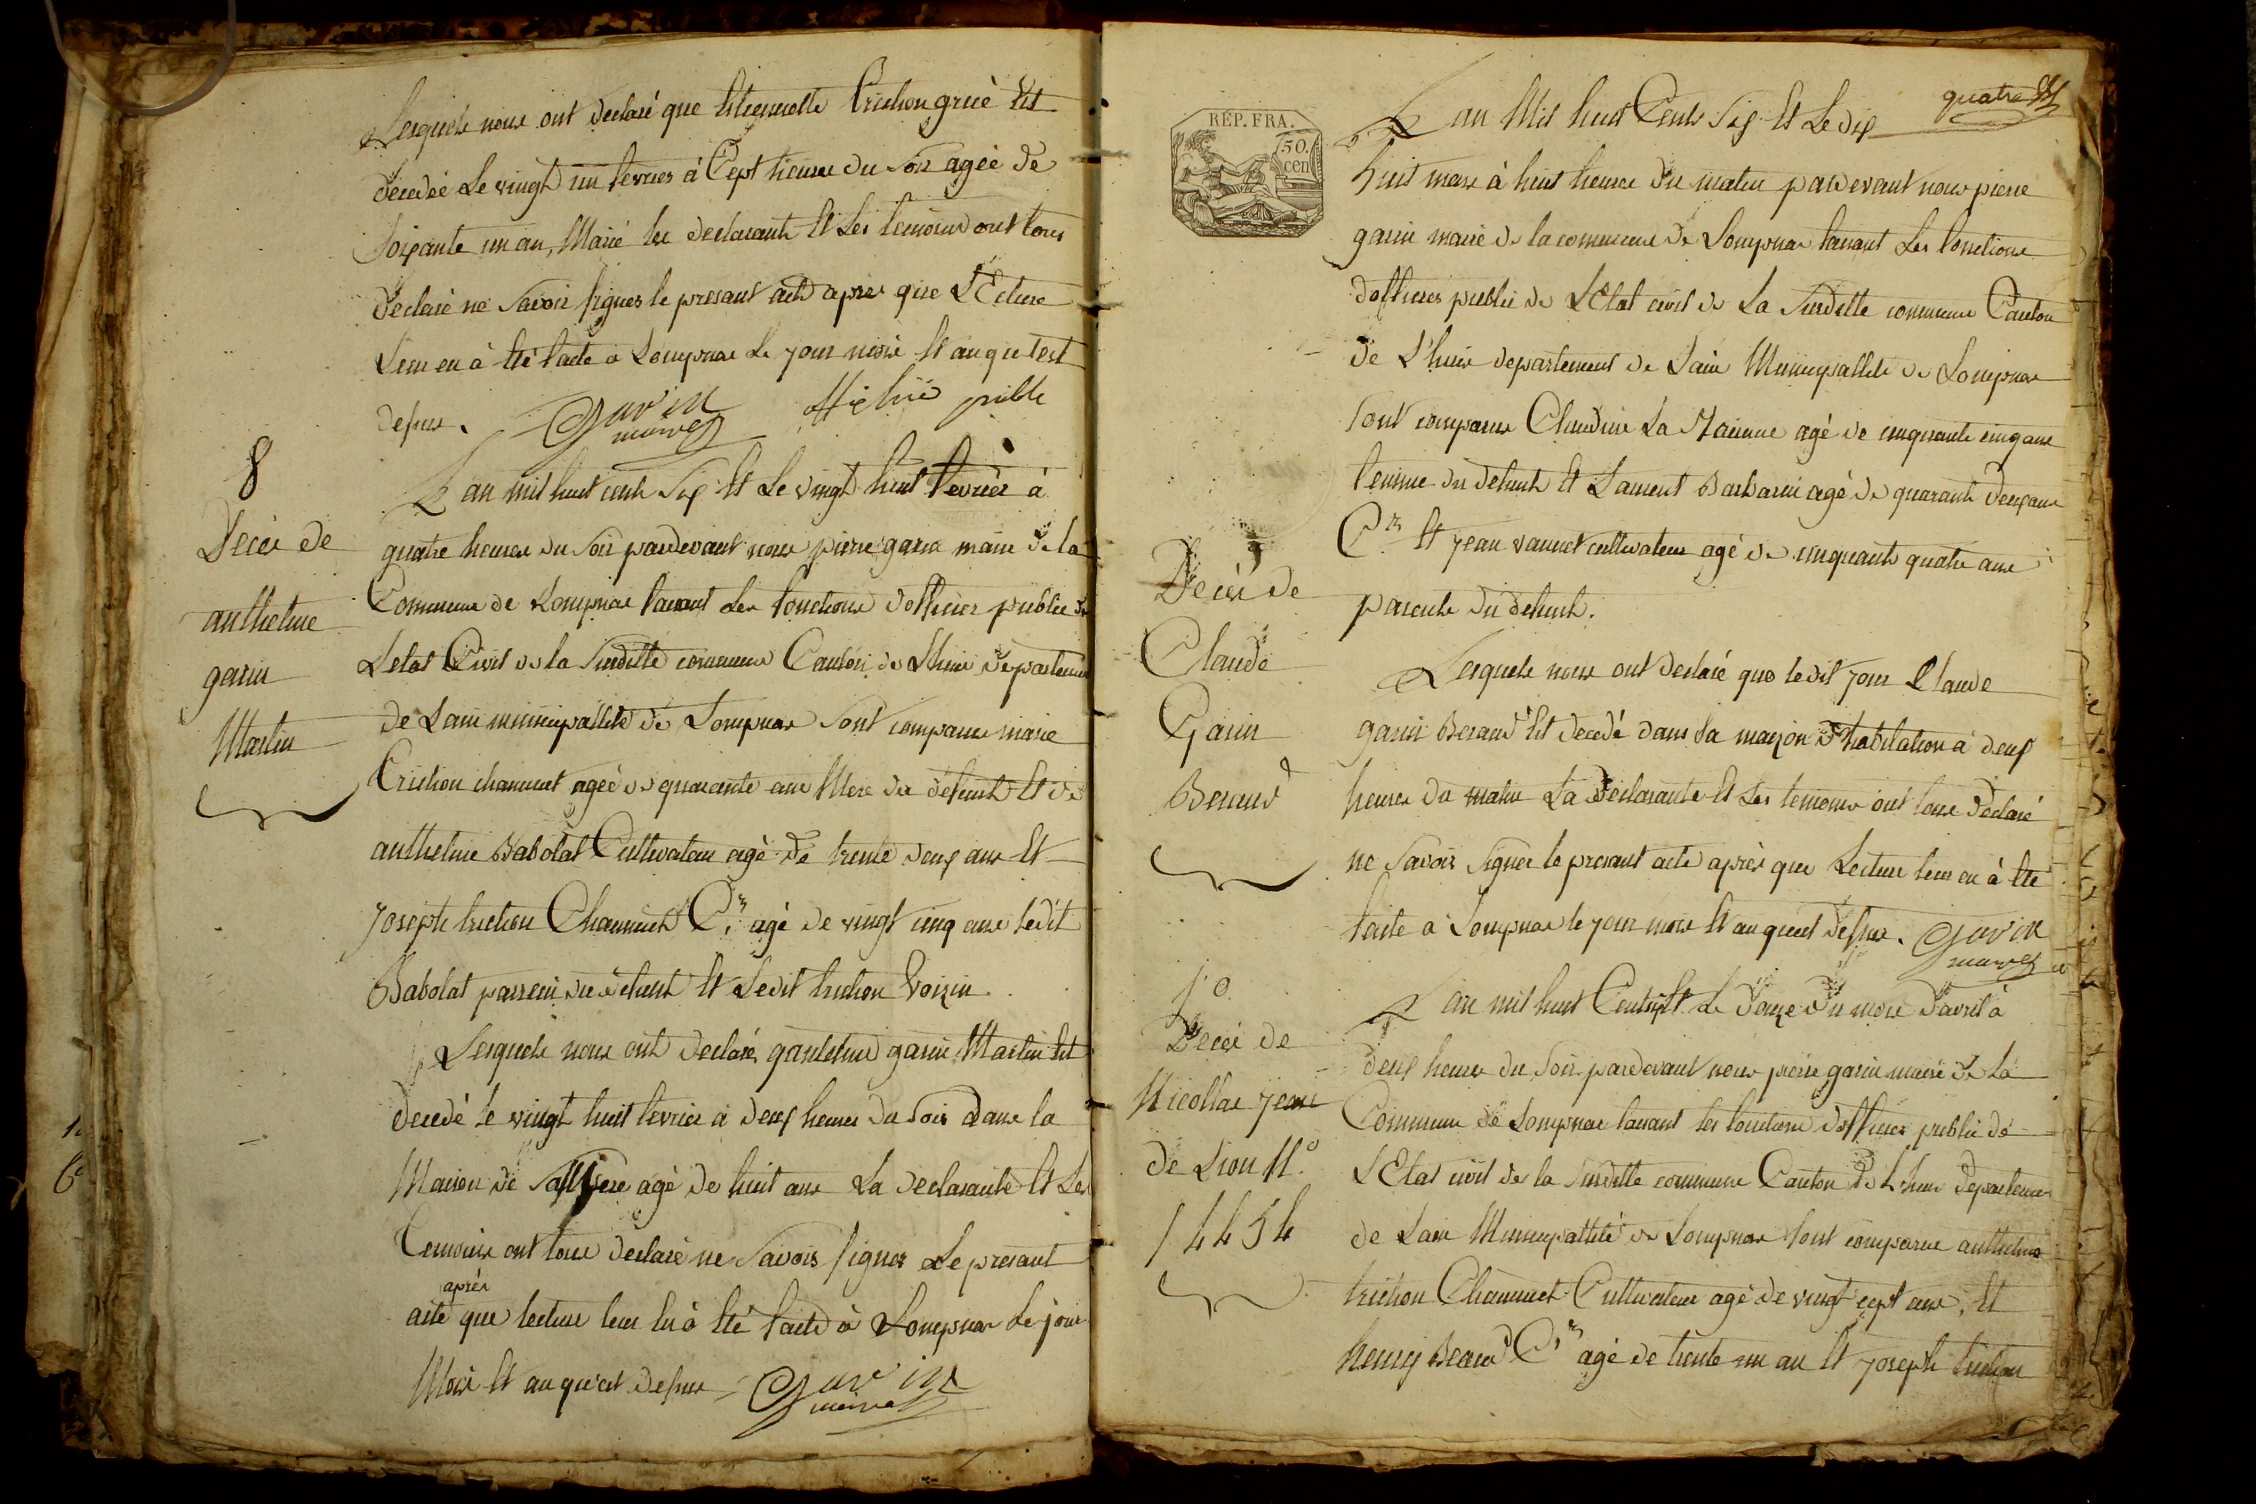 Lesquels nous ont declaré que Etiennette trichon grué Est
decedée Le vingt un fevrier à Cept heures du Soir agée de
Soixante un an, Marié les declarants Et Les temoins ont tous
declaré ne Savoir Signer le presant acte apres que LEcture
Leur en à Eté faite à Lompnas Le jour mois Et an que
dessus. Garin maire publi
8
Deces de
anthelme
garin
Martin
L an mil huit cents Six Et Le vingt huit fevrier à
quatre heures du Soir pardevant nous pierre garin maire de la
Commune de Lompnas faisant Les fonctions dofficier public de
Letat Civil de la Susditte commune Canton de Lhuis departement
de Lain municipallité de Lompnas Sont comparus marie
trichon chaumet agée de quarante ans Mere du defunt Et de
anthelme Babolat Cultivateur agé de trente deux ans Et
joseph trichon Chaumet C.r agé de vingt cinq ans ledit
Babolat parrein du defunt Et Ledit trichon Voizin.
Lesquels nous ont declaré, qantelme garin Martin Est
decedé le vingt huit fevrier à deux heures du Soir dans la
Maison de Sa Mere agé de huit ans La declarante Et Les
temoins ont tous declaré ne Savoir Signer Le presant
après
acte que lecture leur en à Eté faite à Lompnas Le jour
Mois Et an qu'est dessus Garin maire
quatre
REP. FRA.
50.
cen
L an Mil huit Cents Six Et Le dix
huit mars à huit heures du matin pardevant nous pierre
garin maire de la commune de Lompnas faisant Les fonctions
dofficier public de LEtat civil de La Susditte commune Canton
de L'huis departement de Lain Municipallité de Lompnas
Sont comparus Claudine La agé de cinquante cinq ans
femme du defunt Et Laurent Barbarin agé de quarante deux ans
C.r Et jean vannet cultivateur agé de cinquante quatre ans
parents du defunt.
9
Deces de
Claude
Garin
Beraud
Lesquels nous ont declaré que ledit jour Claude
garin Beraud Est decedé dans sa maizon d'habitation à deux
heures du matin La declarante Et Les temoins ont tous declaré
ne Savoir Signer le presant acte après que Lecture leur en à Eté
faite à Lompnas le jour mois Et an quest dessus. Garin
maire
10
Deces de
Nicollas jean
de Lion N.o
14454
L an mil huit Cents Six Et Le douze du mois davril à
deux heures du Soir pardevant nous pierre garin maire de La
Commune de Lompnas faisant les fonctions dofficier public de
LEtat civil de la Susditte commune Canton de Lhuis departement
de Lain Municipallité de Lompnas Sont comparus anthelme
trichon Chaumet Cultivateur agé de vingt cept ans, Et
henry Beaud C.r agé de trente un an Et joseph trichon